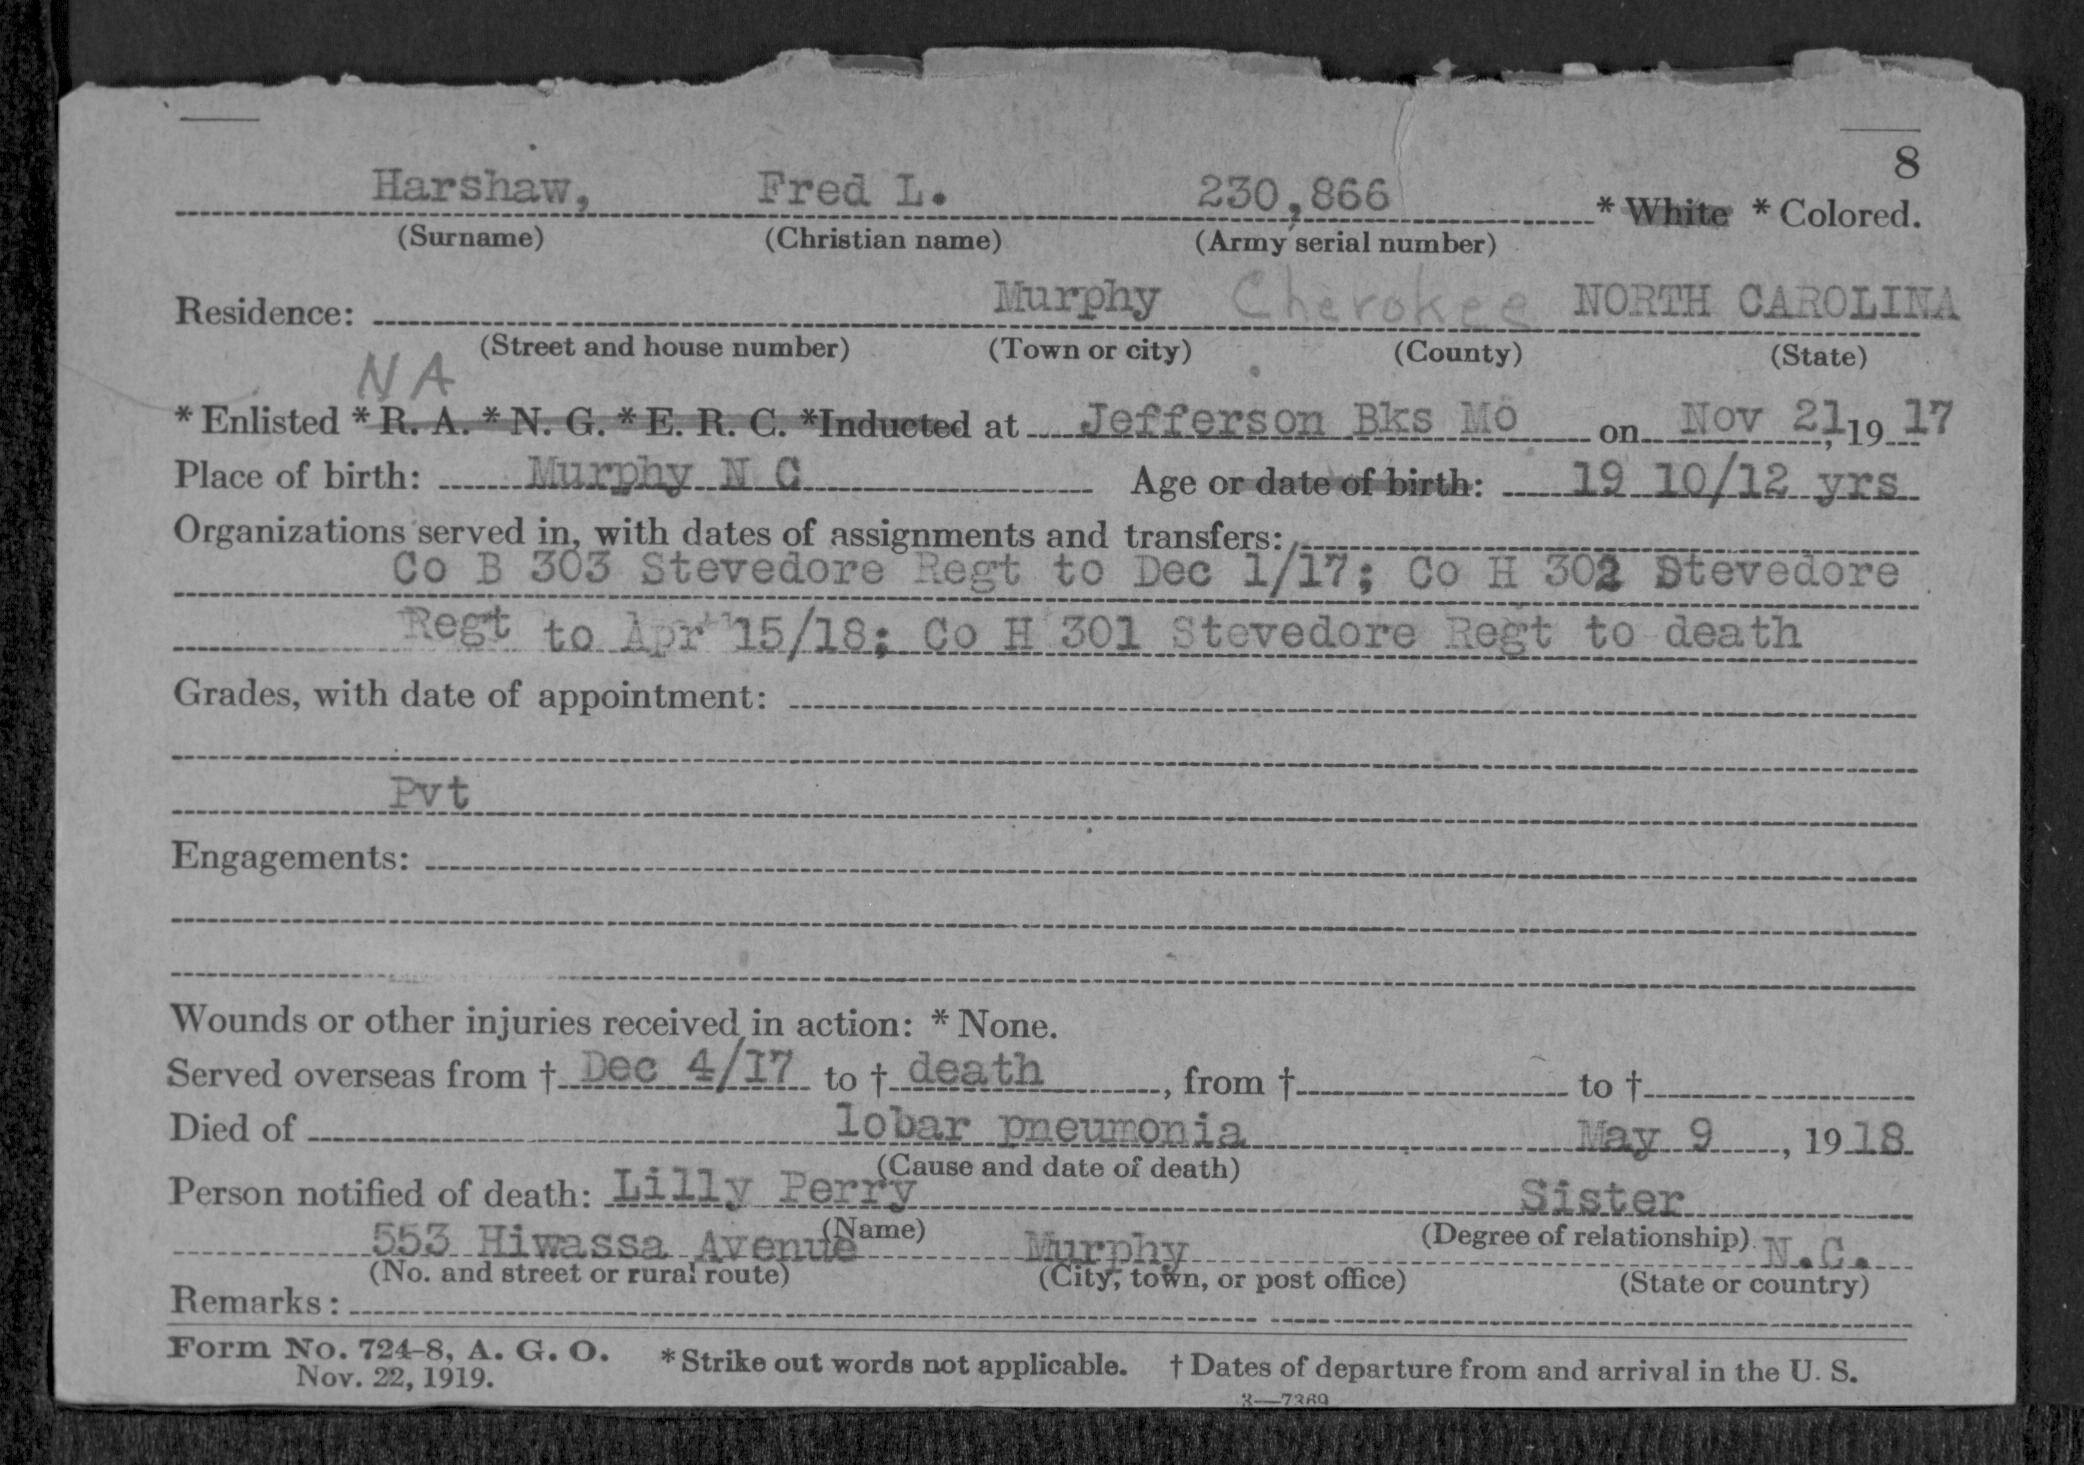 8
Harshaw, Fred L. 230,866 * White * Colored.
(Surname) (Christian name) (Army serial number)
Residence: Murphy Cherokee NORTH CAROLINA
(Street and house number) (Town or city) (County) (State)
NA
* Enlisted * R. A. * N. G. * E. R. C. *Inducted at Jefferson Bks Mo on Nov 21, 19 17
Place of birth: Murphy N C Age or date of birth: 19 10/12 yrs
Organizations served in, with dates of assignments and transfers:
Co B 303 Stevedore Regt to Dec 1/17; Co H 302 Stevedore
Regt to Apr 15/18; Co H 301 Stevedore Regt to death
Grades, with date of appointment:
Pvt
Engagements:
Wounds or other injuries received in action: * None.
Served overseas from † Dec 4/17 to † death, from † to †
Died of lobar pneumonia May 9, 19 18
(Cause and date of death)
Person notified of death: Lilly Perry Sister
(Name) (Degree of relationship)
553 Hiwassa Avenue Murphy N.C.
(No. and street or rural route) (City, town, or post office) (State or country)
Remarks:
Form No. 724-8, A. G. O. * Strike out words not applicable. † Dates of departure from and arrival in the U. S.
Nov. 22, 1919.
3—7369